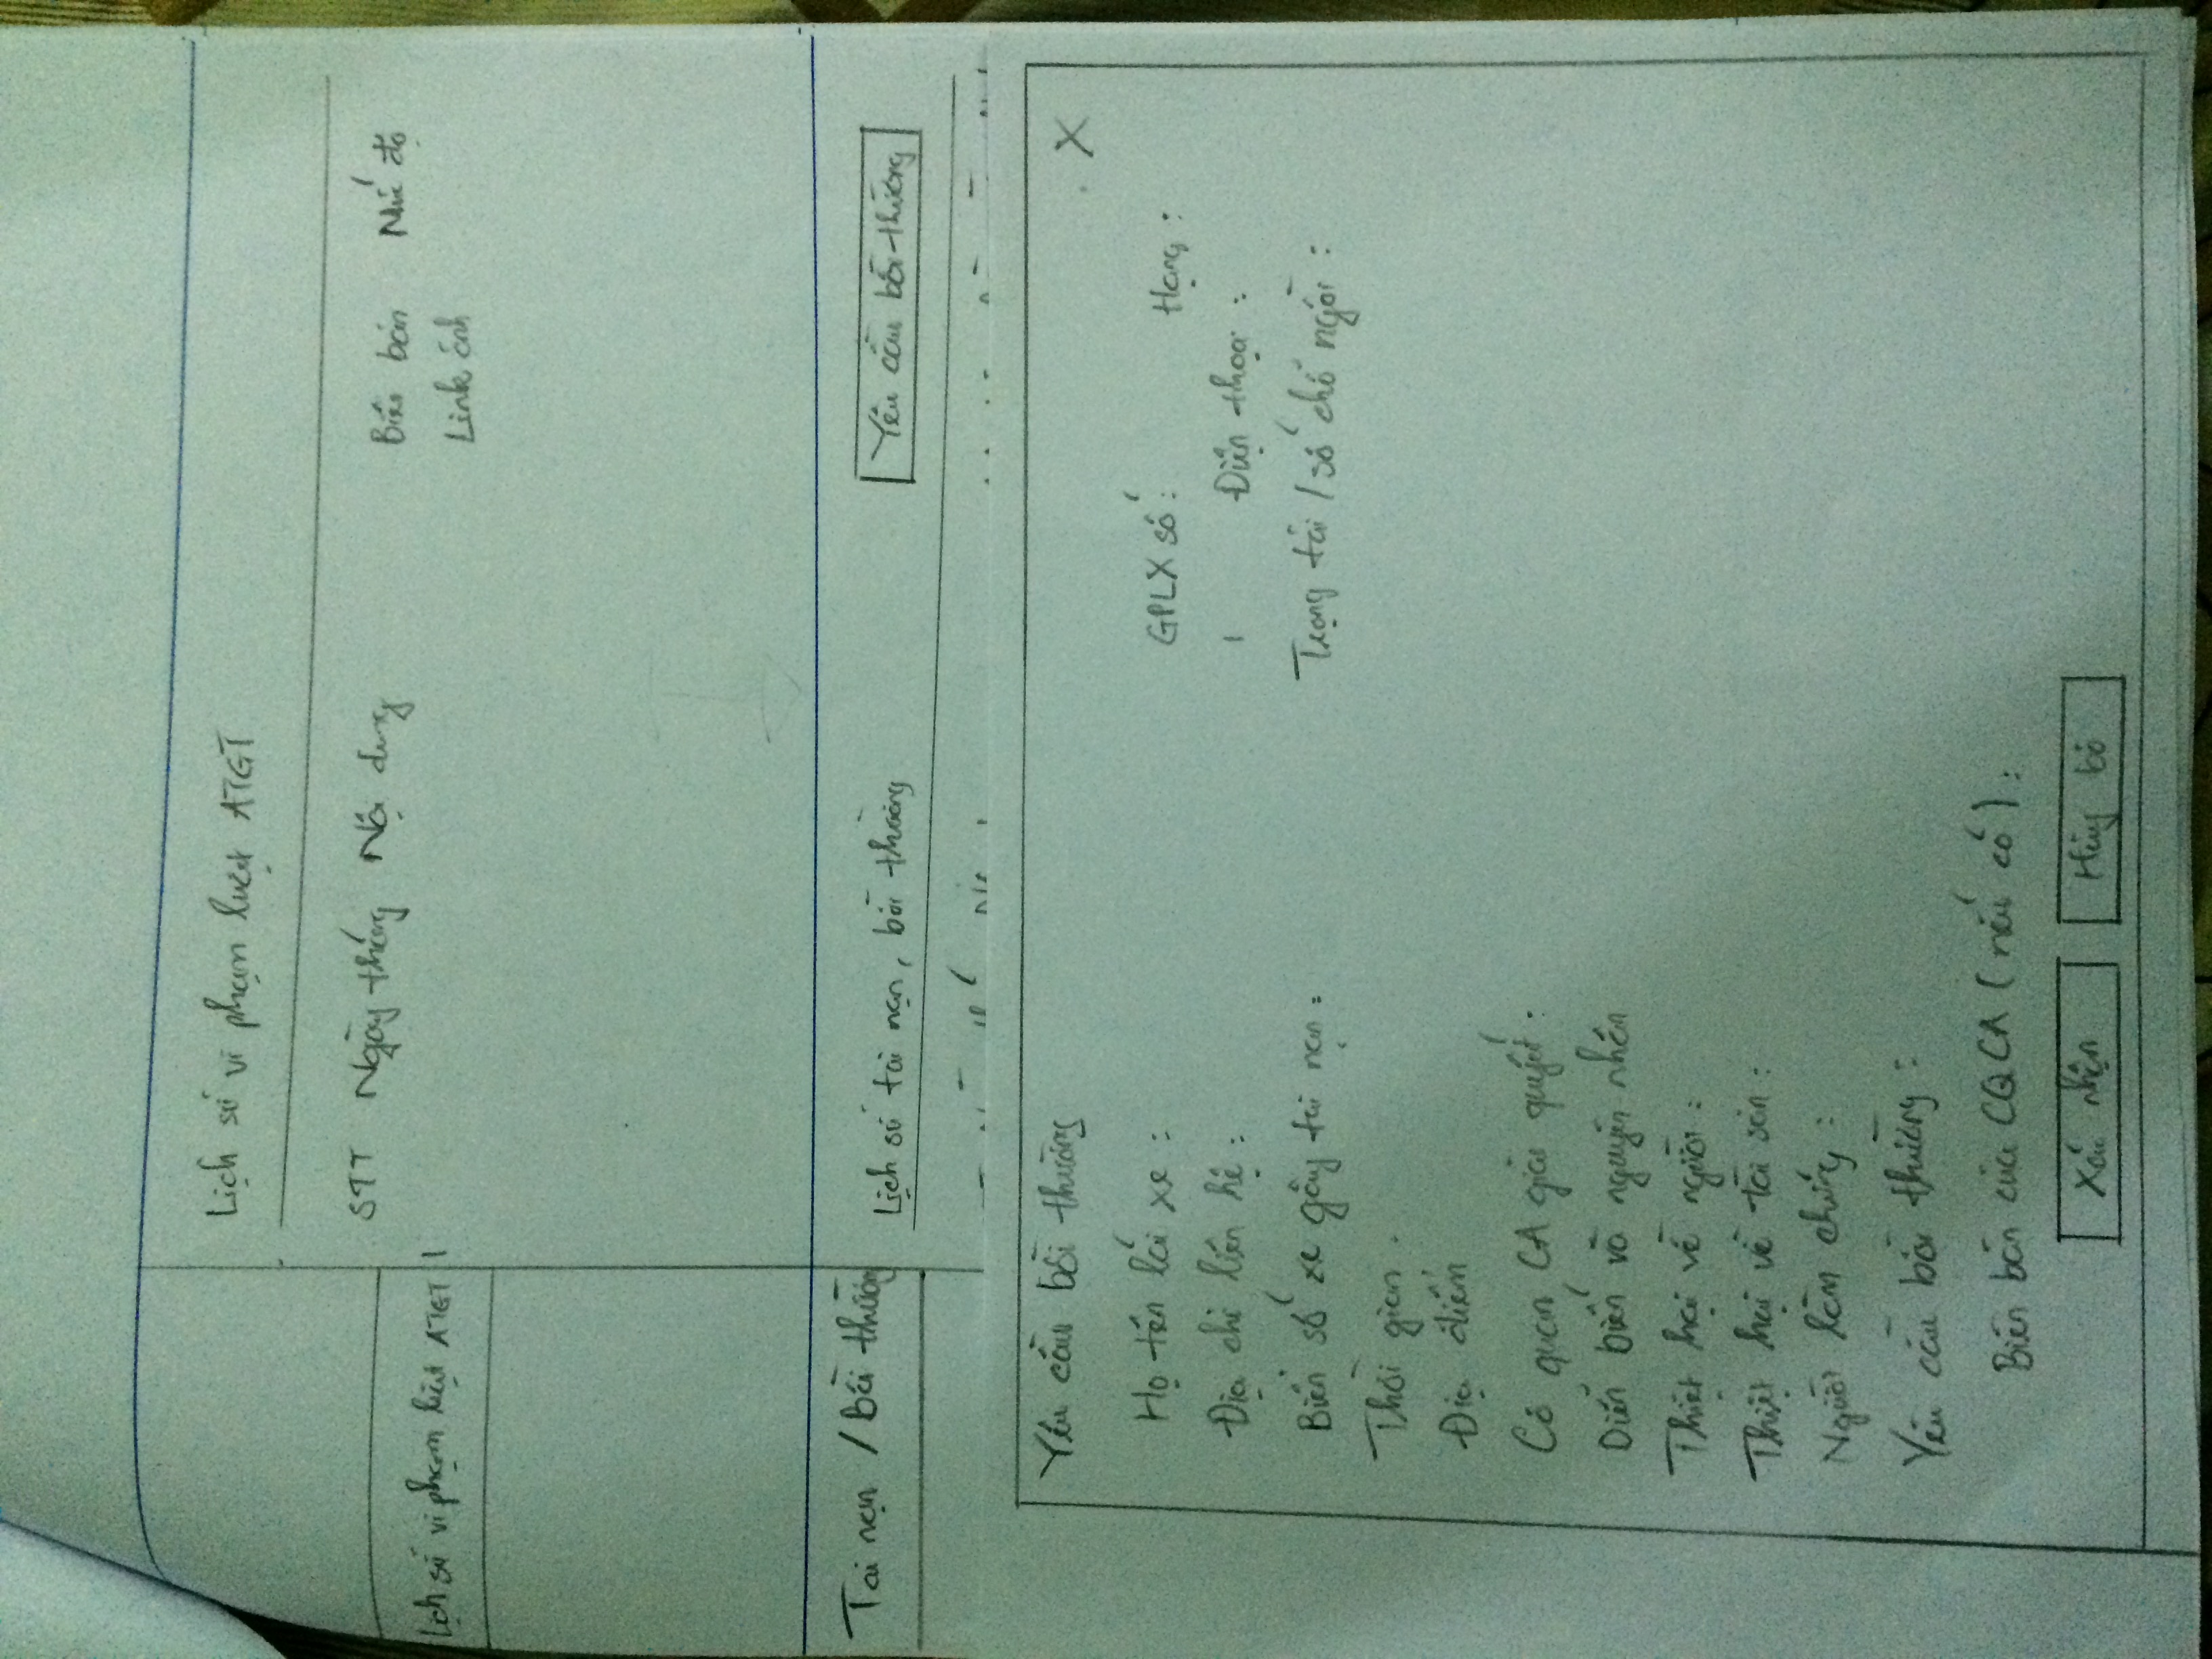 Lịch sử vi phạm luật ATGT
STT Ngày tháng Nội dung Biên bản Mức độ
Link ảnh
Lịch sử vi phạm luật ATGT
Tai nạn / Bồi thường
Lịch sử tai nạn, bồi thường
Yêu cầu bồi thường
Yêu cầu bồi thường X
Họ tên lái xe : GPLX số : Hạng :
Địa chỉ liên hệ : Điện thoại :
Biển số xe gây tai nạn : Trọng tải / số chỗ ngồi :
Thời gian .
Địa điểm
Cơ quan CA giải quyết .
Diễn biến và nguyên nhân
Thiệt hại về người :
Thiệt hại về tài sản :
Người làm chứng :
Yêu cầu bồi thường :
Biên bản của CQCA ( nếu có ) :
Xác nhận Hủy bỏ